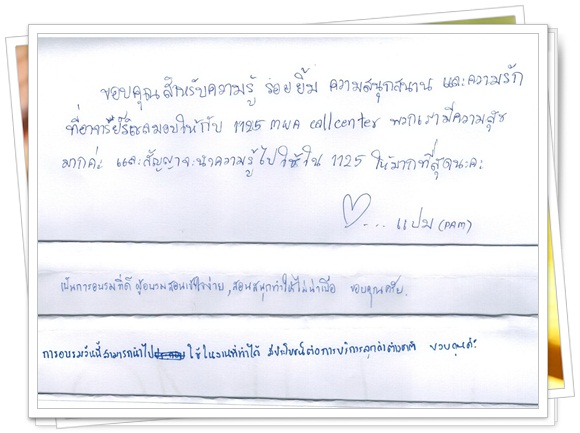 ขอบคุณสำหรับความรู้ รอยยิ้ม ความสนุกสนาน และความรัก
ที่อาจารย์ มอบให้กับ 1125 callcenter พวกเรามีความสุข
มากค่ะ และสัญญาจะนำความรู้ไปใช้ใน 1125 ให้มากที่สุดนะคะ
♡... แปม (PAM)
เป็นการอบรมที่ดี ผู้อบรมสอนเข้าใจง่าย, สอนสนุกทำให้ไม่น่าเบื่อ ขอบคุณครับ.
การอบรมวันนี้สามารถนำไป ใช้ในงานที่ทำได้ มีประโยชน์ต่อการบริการลูกค้าต่างชาติ ขอบคุณค่ะ